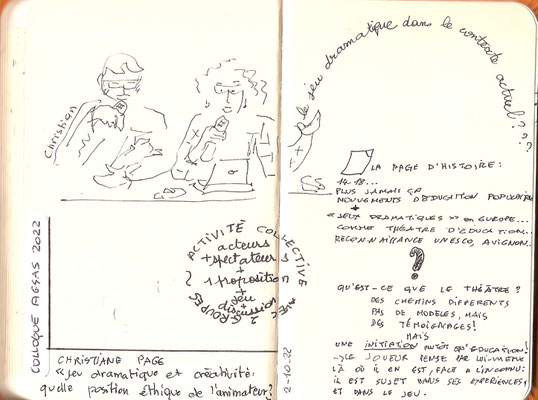 Christian
COLLOQUE AGSAS 2022
ACTIVITÉ COLLECTIVE
acteurs
+ spectateurs
+
1 proposition
+
jeu
+
discussion
AVEC 2 GROUPES
CHRISTIANE PAGE
«jeu dramatique et créativité:
quelle position éthique de l'animateur?
le jeu dramatique dans le contexte actuel???
LA PAGE D'HISTOIRE:
14-18...
PLUS JAMAIS ÇA
MOUVEMENTS D'EDUCATION POPULAIRE
+
«JEUX DRAMATIQUES» en EUROPE...
COMME THÉATRE D'EDUCATION.
RECONNAISSANCE UNESCO, AVIGNON...
?
QU'EST-CE QUE LE THÉÂTRE?
DES CHEMINS DIFFERENTS
PAS DE MODELES, MAIS
DES TÉMOIGNAGES!
MAIS
UNE INITIATION PLUTÔT QU'EDUCATION!
LE JOUEUR PENSE PAR LUI-MÊME
LÀ OÙ IL EN EST, FACE A L'INCONNU:
IL EST SUJET DANS SES EXPERIENCES,
ET DANS LE JEU.
2-10-22